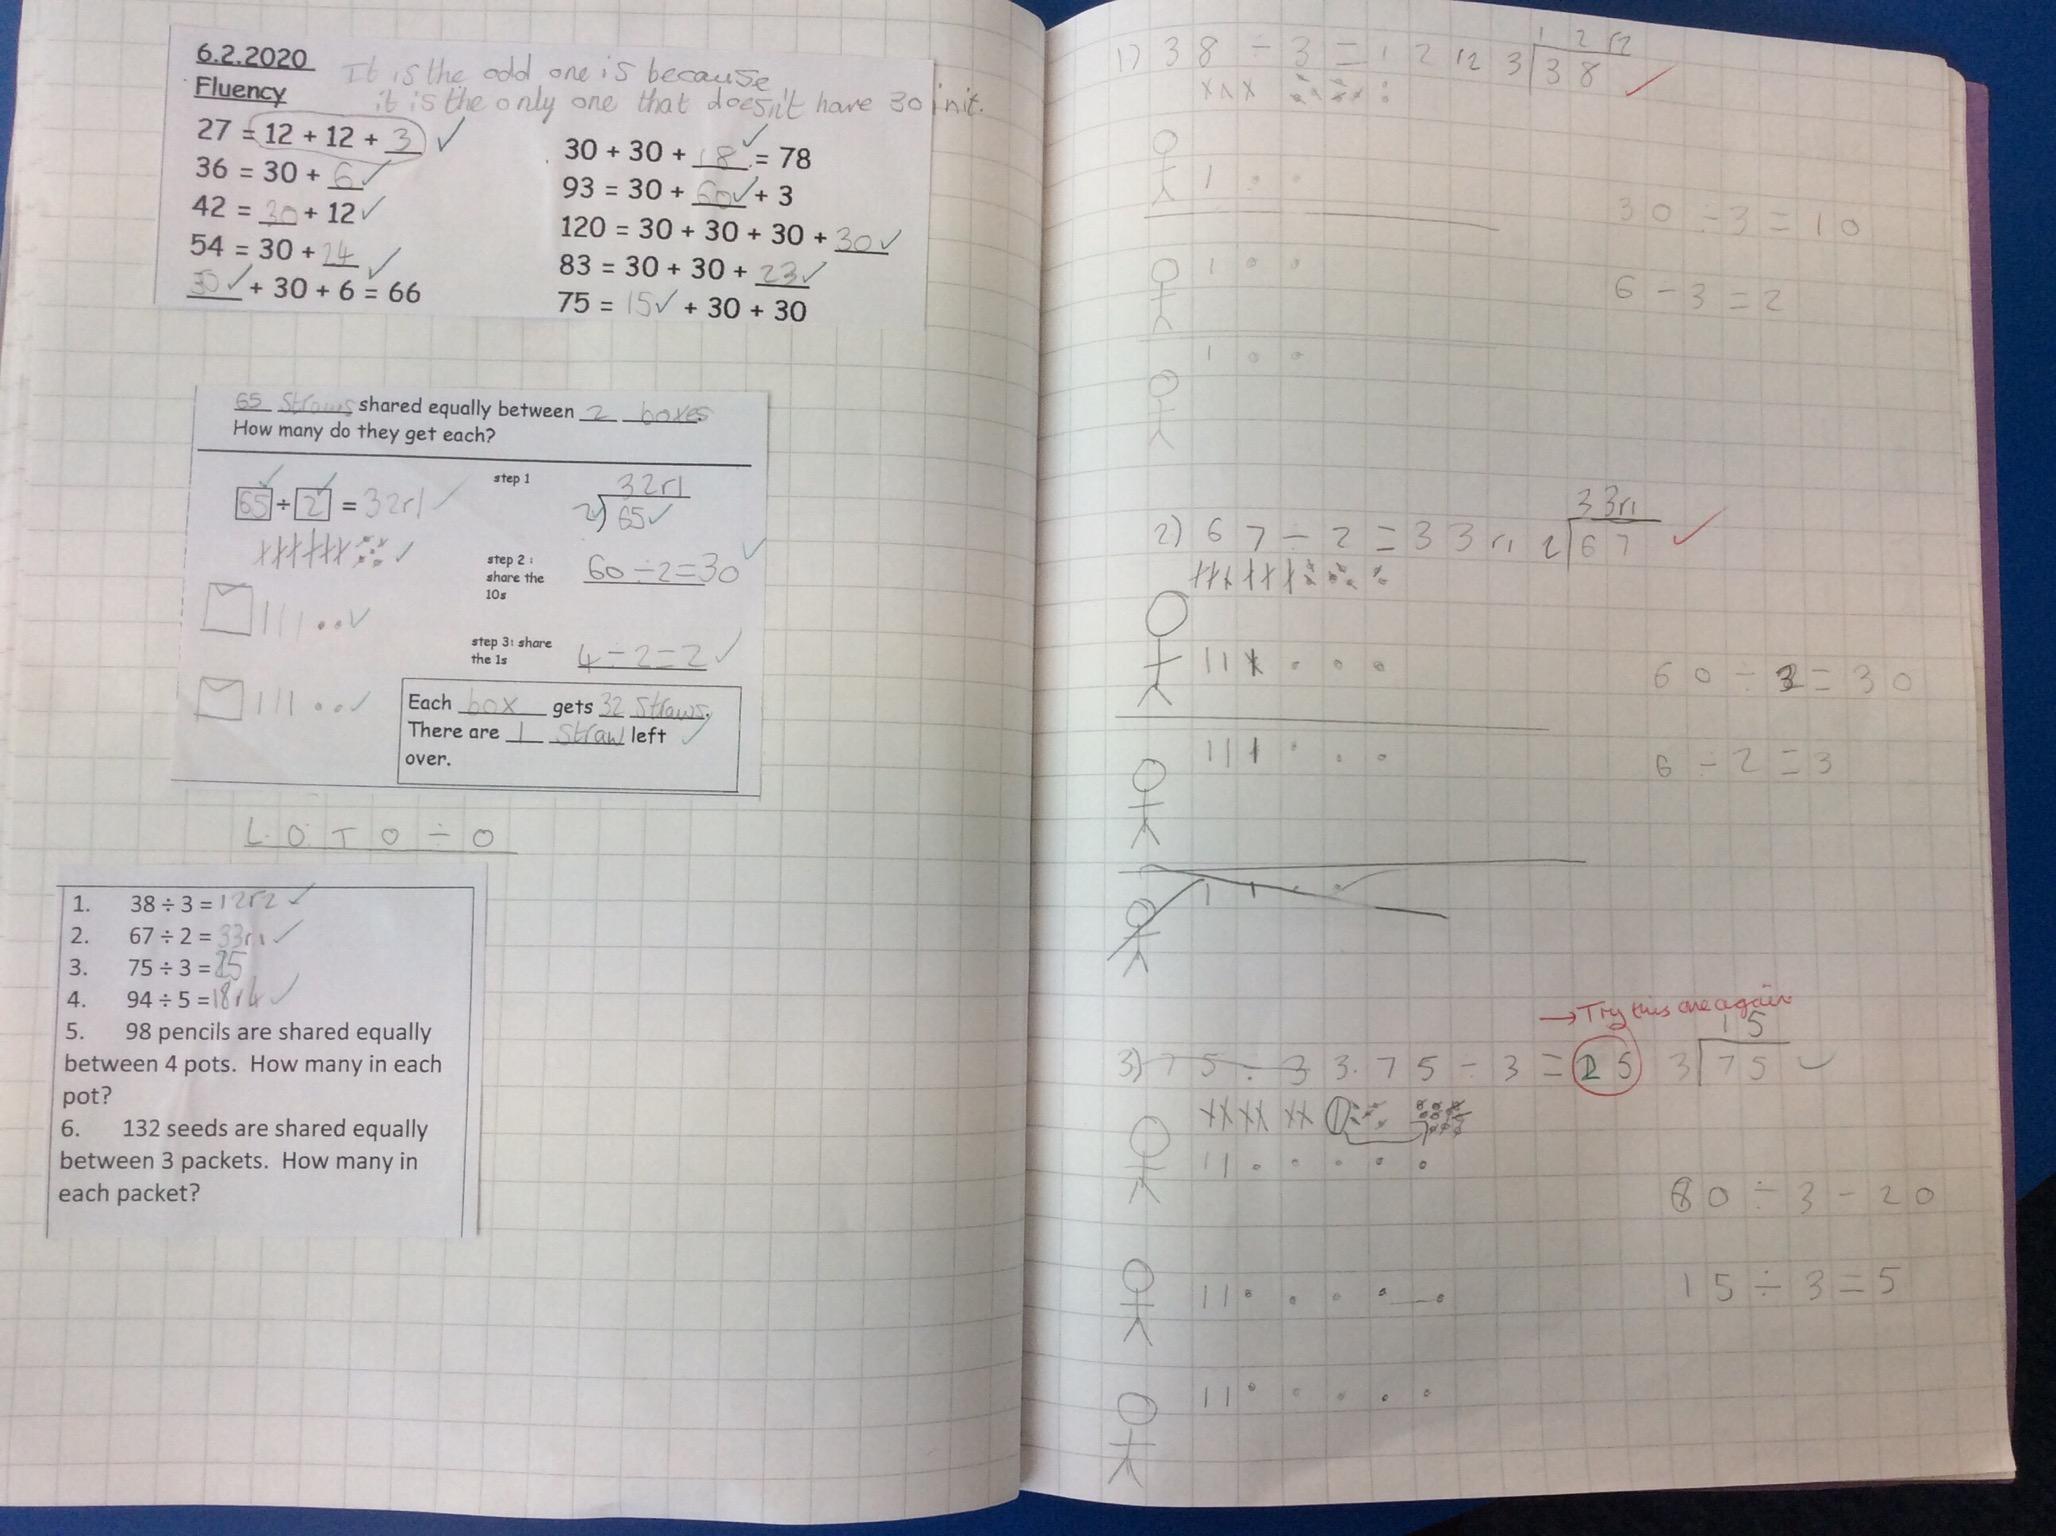 6.2.2020
Fluency
It is the odd one is because
it is the only one that doesn't have 30 init.
27 = 12 + 12 + 3 ✓
36 = 30 + 6 ✓
42 = 30 + 12 ✓
54 = 30 + 24 ✓
30 ✓ + 30 + 6 = 66
30 + 30 + 18 ✓ = 78
93 = 30 + 60 ✓ + 3
120 = 30 + 30 + 30 + 30 ✓
83 = 30 + 30 + 23 ✓
75 = 15 ✓ + 30 + 30
65 straws shared equally between 2 boxes.
How many do they get each?
65 ÷ 2 = 32r1 ✓
step 1
32r1
2)65 ✓
step 2 :
share the
10s
60 ÷ 2 = 30 ✓
step 3: share
the 1s
4 ÷ 2 = 2 ✓
Each box gets 32 straws.
There are 1 straw left
over.
L.O. TO ÷ O
1. 38 ÷ 3 = 12r2 ✓
2. 67 ÷ 2 = 33r1 ✓
3. 75 ÷ 3 = 25
4. 94 ÷ 5 = 18r4 ✓
5. 98 pencils are shared equally
between 4 pots. How many in each
pot?
6. 132 seeds are shared equally
between 3 packets. How many in
each packet?
1) 38 ÷ 3 = 12 r2
12 r2
3)38
30 ÷ 3 = 10
6 - 3 = 2
2) 67 ÷ 2 = 33 r1
33r1
2)67
60 ÷ 2 = 30
6 ÷ 2 = 3
→ Try this one again
3) 75 ÷ 3 3. 75 ÷ 3 = 25
15
3)75 ✓
60 ÷ 3 - 20
15 ÷ 3 = 5